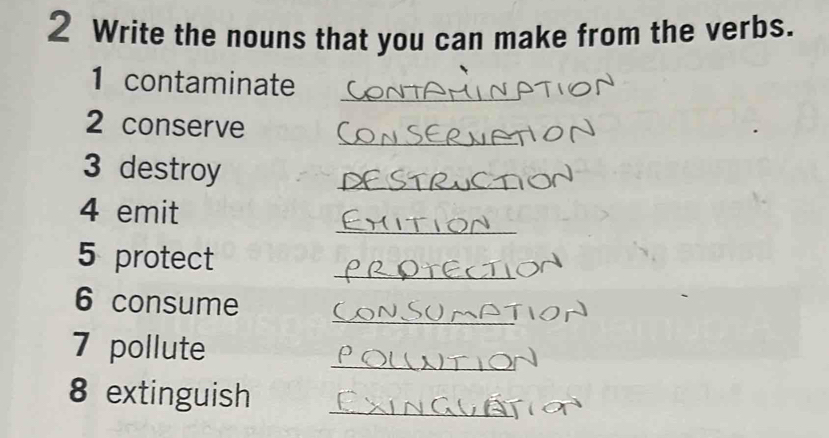 2 Write the nouns that you can make from the verbs.
1 contaminate CONTAMINATION
2 conserve CONSERVATION
3 destroy DESTRUCTION
4 emit EMITION
5 protect PROTECTION
6 consume CONSUMATION
7 pollute POLLUTION
8 extinguish EXINGUATION